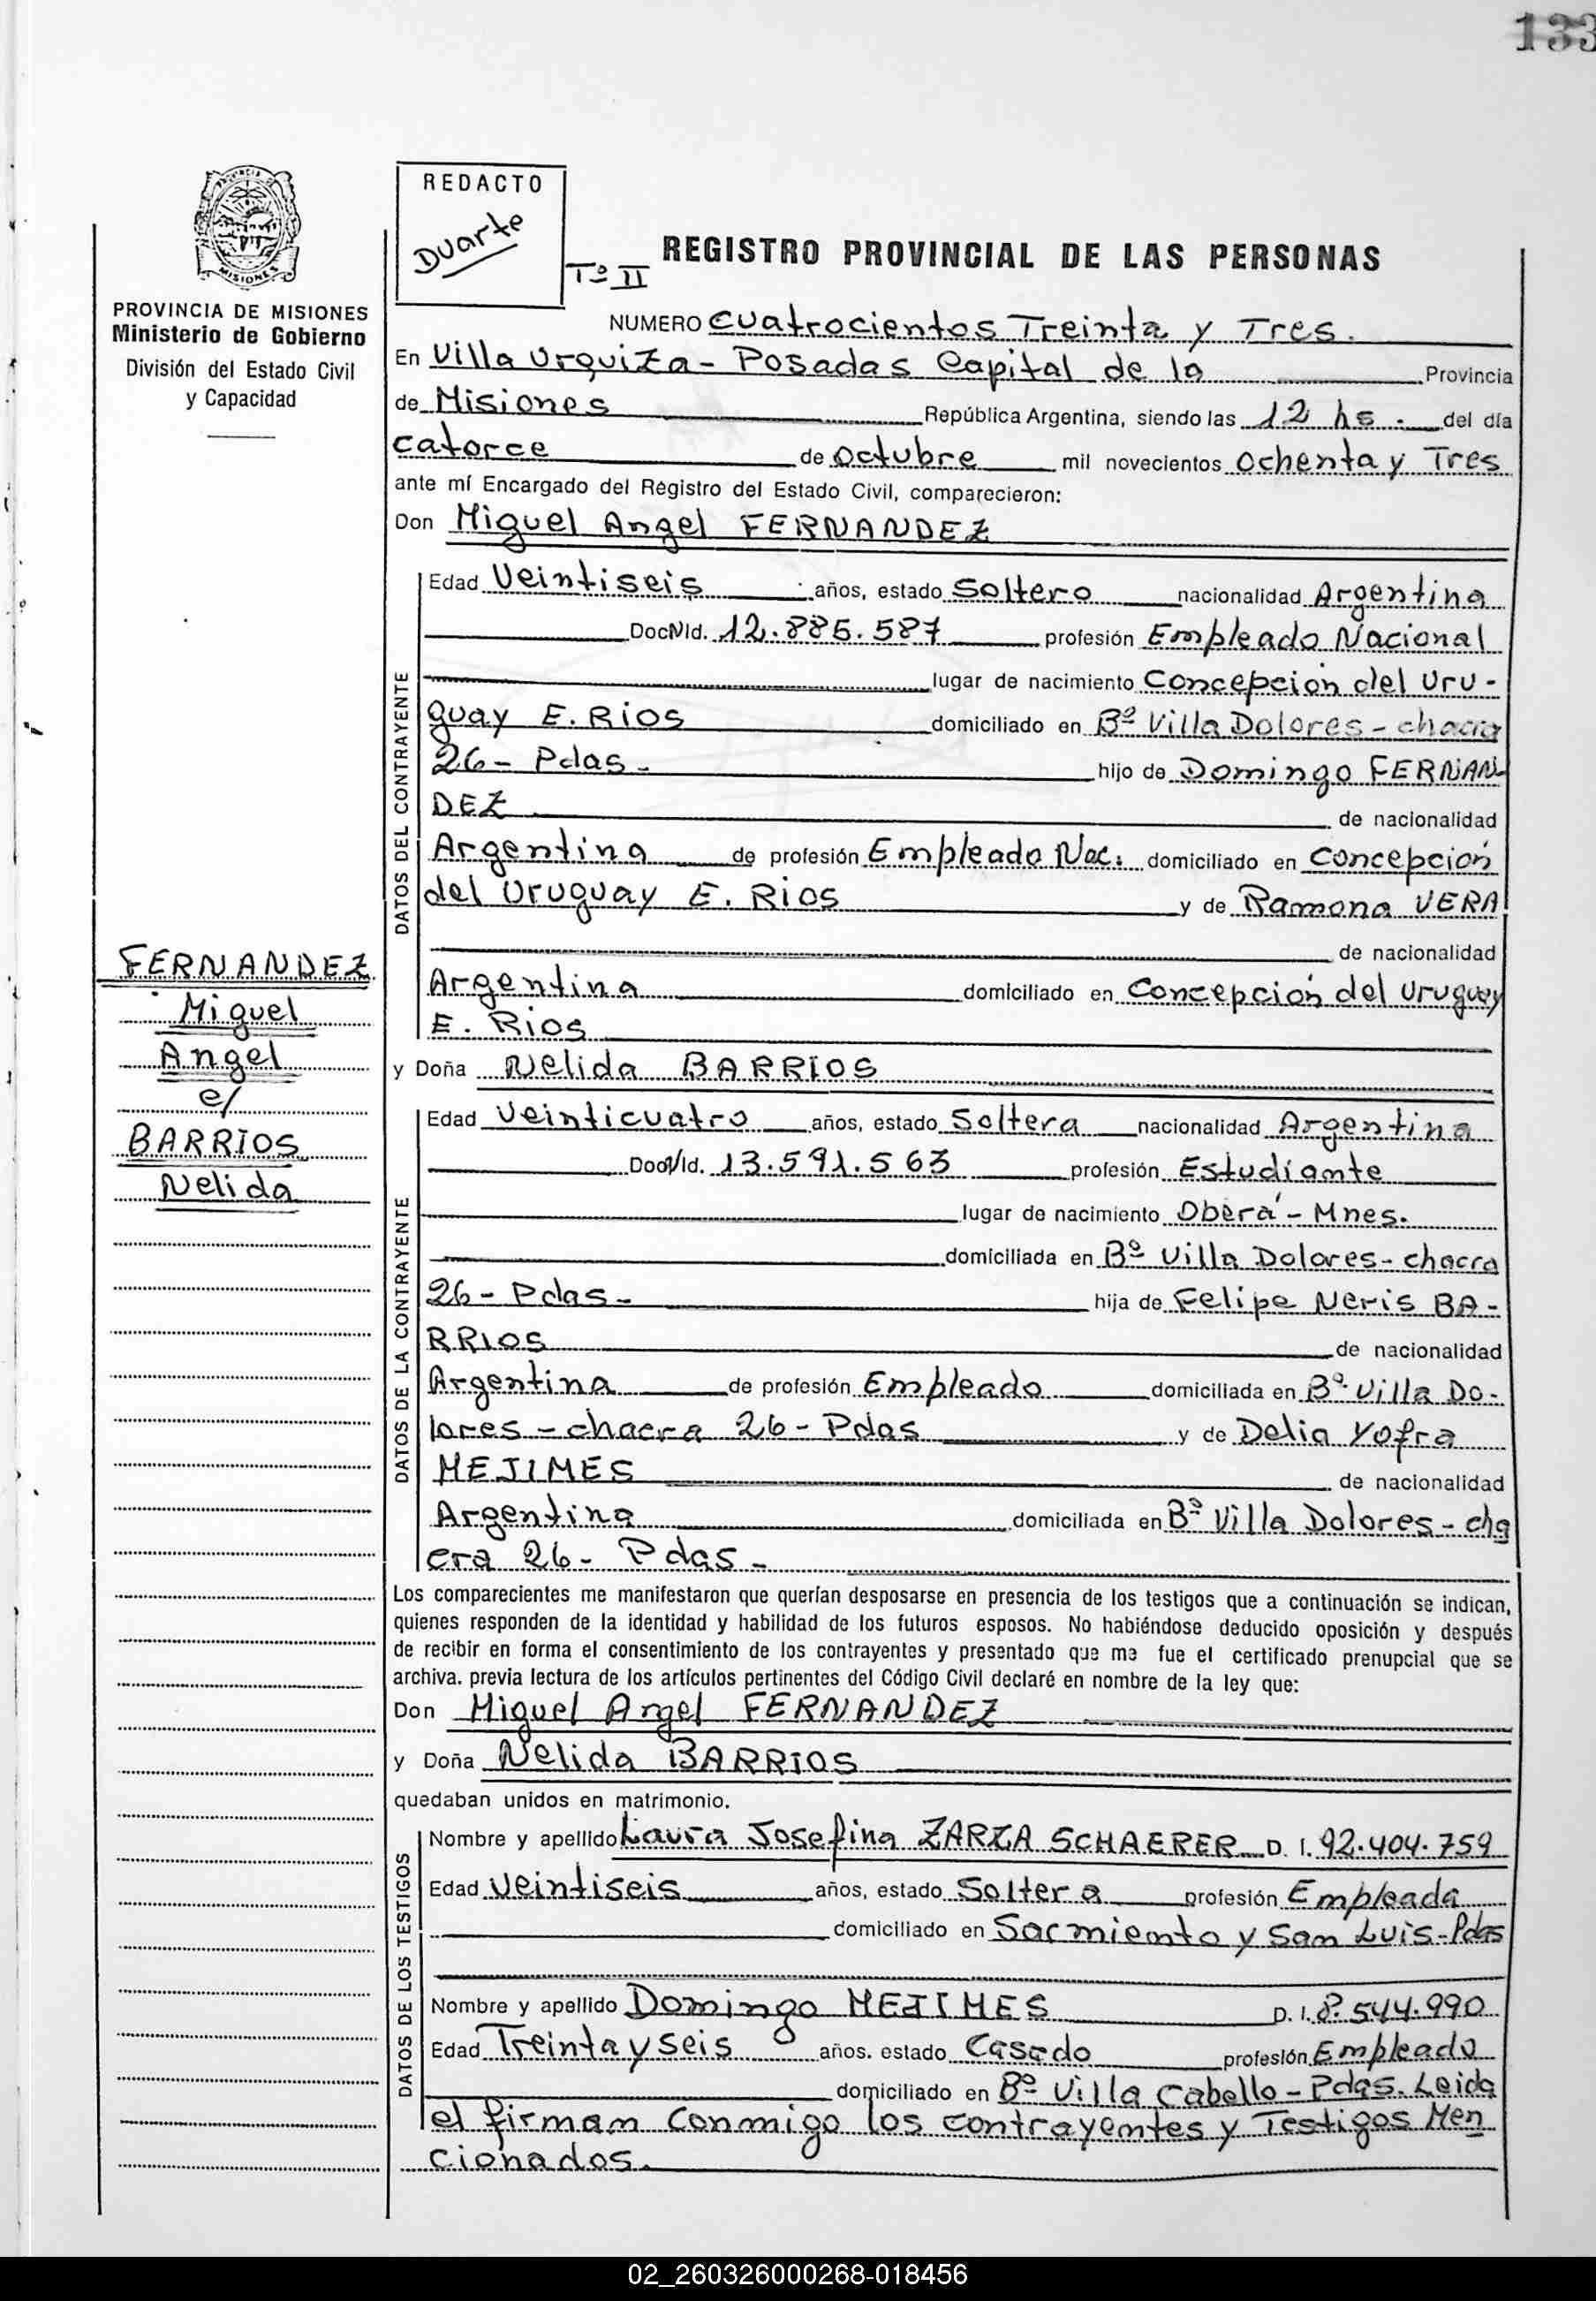 133
REDACTO
Duarte
Tº II
REGISTRO PROVINCIAL DE LAS PERSONAS
PROVINCIA DE MISIONES
Ministerio de Gobierno
División del Estado Civil
y Capacidad
NUMERO cuatrocientos Treinta y Tres.
En Villa Urquiza - Posadas Capital de la Provincia
de Misiones República Argentina, siendo las 12 hs. del día
catorce de octubre mil novecientos ochenta y Tres
ante mí Encargado del Registro del Estado Civil, comparecieron:
Don Miguel Angel FERNANDEZ
DATOS DEL CONTRAYENTE
Edad Veintiseis años, estado Soltero nacionalidad Argentina
Doc N Id. 12.885.587 profesión Empleado Nacional
lugar de nacimiento Concepción del Uru-
guay E. Rios domiciliado en Bº Villa Dolores - chacra
26 - Pdas - hijo de Domingo FERNAN-
DEZ de nacionalidad
Argentina de profesión Empleado Nac. domiciliado en Concepción
del Uruguay E. Rios y de Ramona VERA
de nacionalidad
Argentina domiciliado en Concepción del Uruguay
E. Rios
FERNANDEZ
Miguel
Angel
c/
BARRIOS
Nelida
y Doña Nelida BARRIOS
DATOS DE LA CONTRAYENTE
Edad Veinticuatro años, estado Soltera nacionalidad Argentina
Doc N Id. 13.591.563 profesión Estudiante
lugar de nacimiento Oberá - Mnes.
domiciliada en Bº Villa Dolores - chacra
26 - Pdas - hija de Felipe Neris BA-
RRIOS de nacionalidad
Argentina de profesión Empleado domiciliada en Bº Villa Do-
lores - chacra 26 - Pdas y de Delia Yofra
MEJIMES de nacionalidad
Argentina domiciliada en Bº Villa Dolores - cha
cra 26 - Pdas -
Los comparecientes me manifestaron que querían desposarse en presencia de los testigos que a continuación se indican,
quienes responden de la identidad y habilidad de los futuros esposos. No habiéndose deducido oposición y después
de recibir en forma el consentimiento de los contrayentes y presentado que me fue el certificado prenupcial que se
archiva. previa lectura de los artículos pertinentes del Código Civil declaré en nombre de la ley que:
Don Miguel Angel FERNANDEZ
y Doña Nelida BARRIOS
quedaban unidos en matrimonio.
DATOS DE LOS TESTIGOS
Nombre y apellido Laura Josefina ZARZA SCHAERER D. I. 92.404.759
Edad Veintiseis años, estado Soltera profesión Empleada
domiciliado en Sarmiento y San Luis - Pdas
Nombre y apellido Domingo MEJIMES D. I. 8.544.990
Edad Treinta y seis años. estado Casado profesión Empleado
domiciliado en Bº Villa Cabello - Pdas. Leida
el firman conmigo los contrayentes y Testigos Men
cionados.
02_260326000268-018456